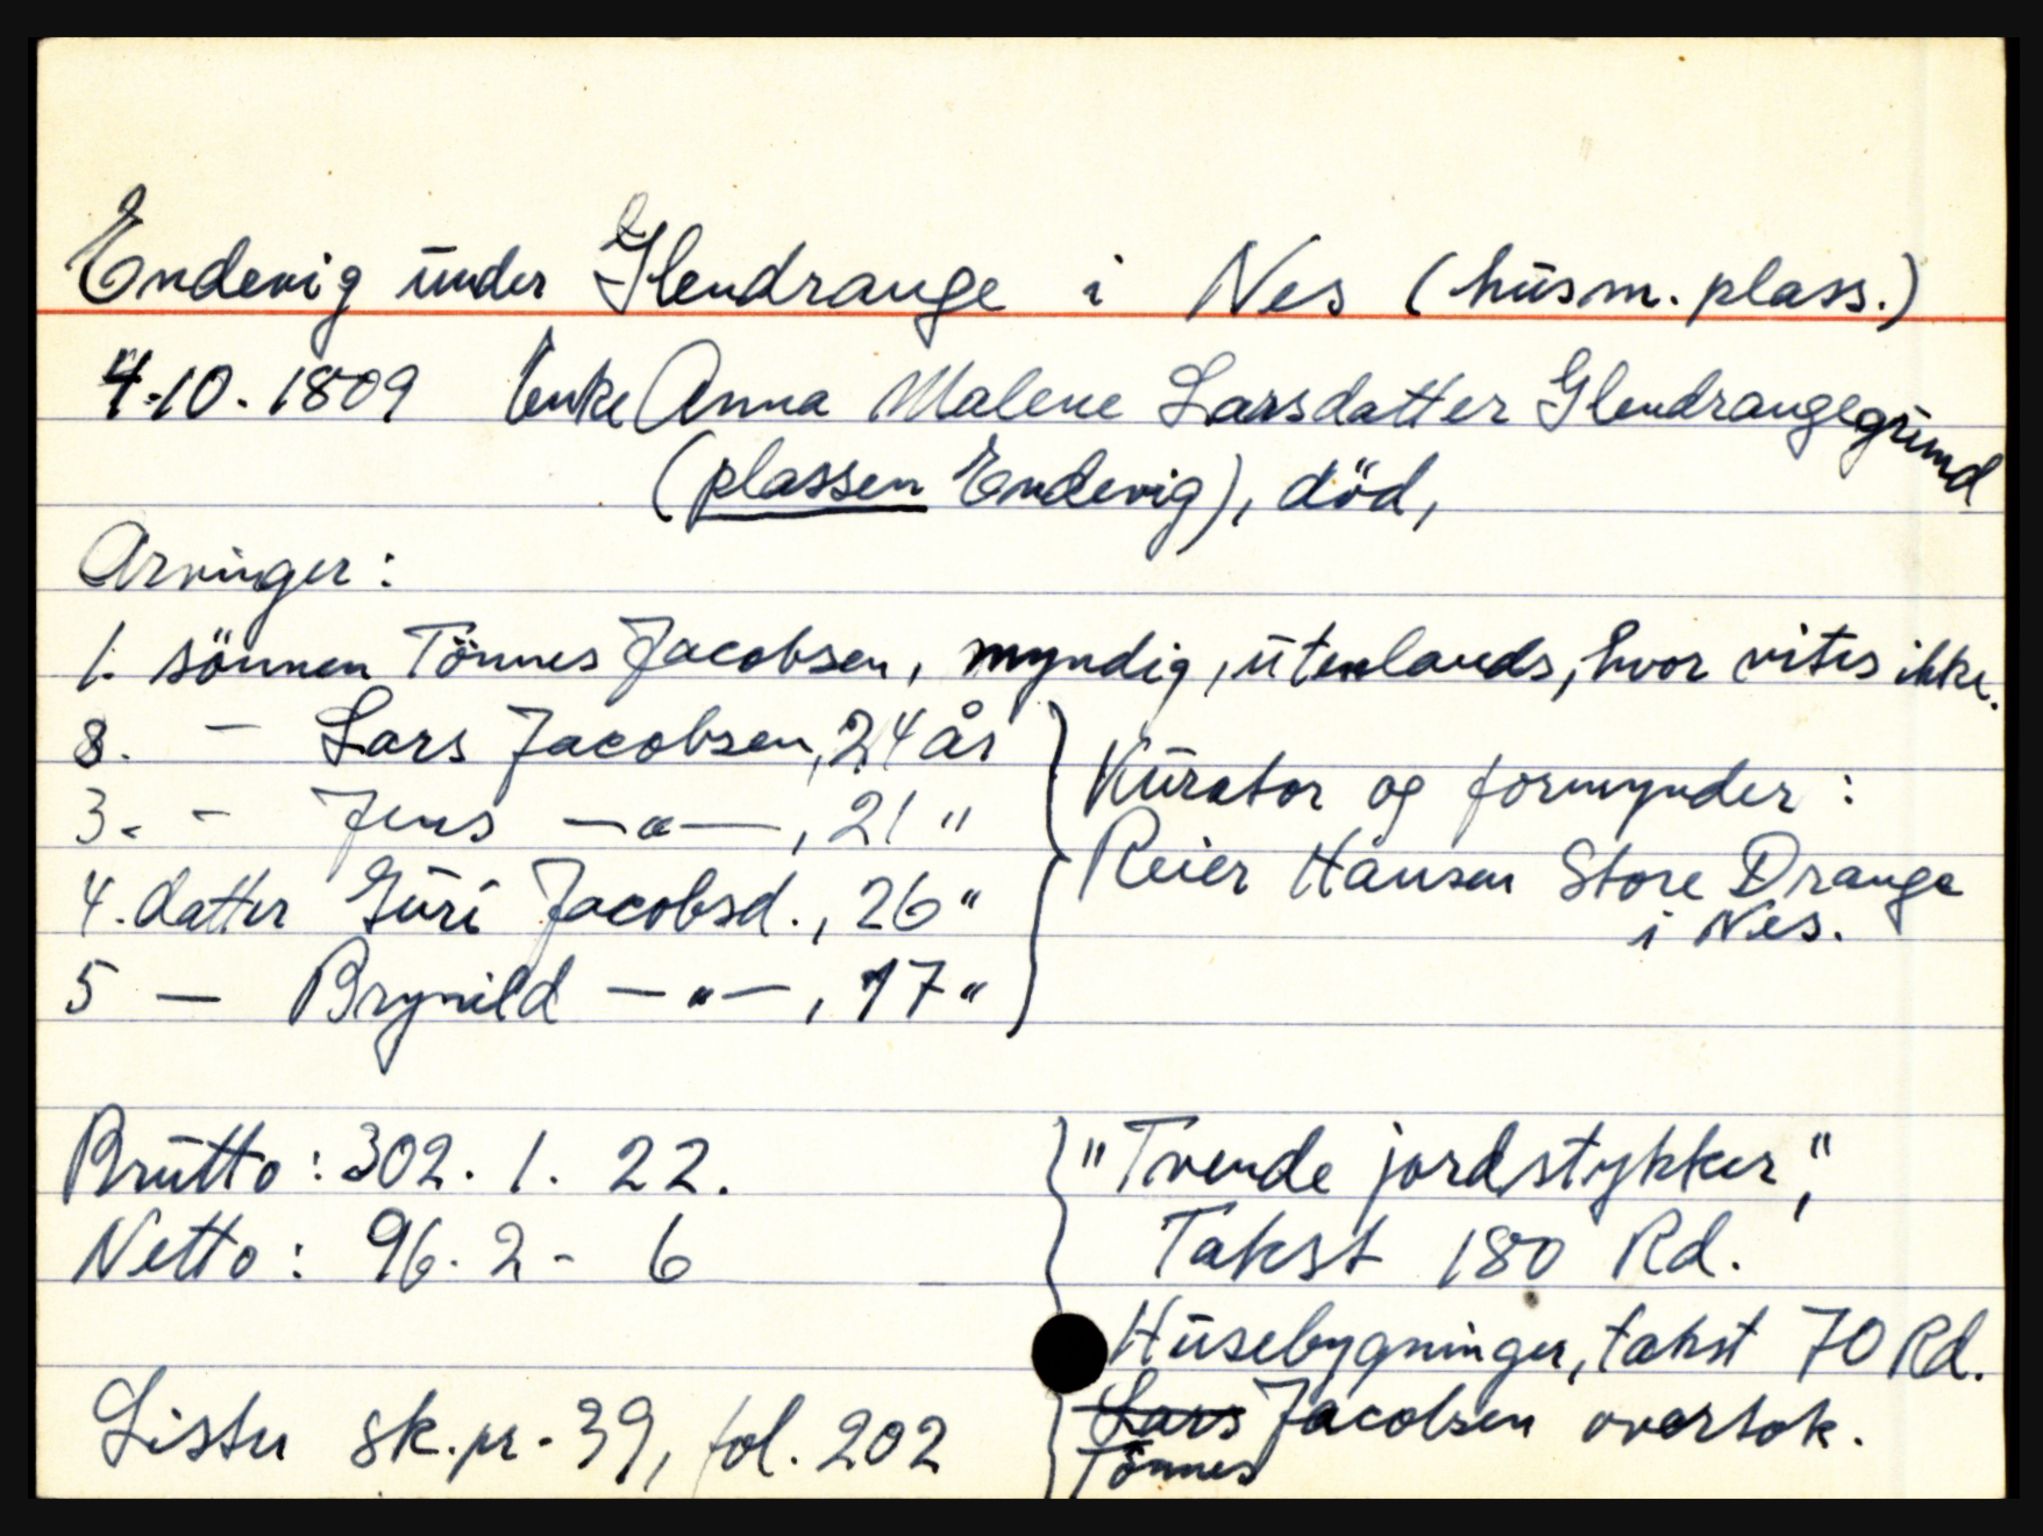 Endevig under Glendrange i Nes (husm. plass.)
4.10.1809 Enke Anna Malene Larsdatter Glendrangegrund
(plassen Endevig), död,
Arvinger:
1. sönnen Tönnes Jacobsen, myndig, utenlands, hvor vites ikke.
2. — Lars Jacobsen, 24 år
3. - Jens —"—, 21 "
4. datter Guri Jacobsd., 26 "
5 — Brynild —"—, 17 "
Kurator og formynder:
Reier Hansen Store Drange
i Nes.
Brutto: 302. 1. 22.
Netto: 96. 2 - 6
Lister sk.pr. 39, fol. 202
"Tvende jordstykker",
Takst 180 Rd.
Husebygninger, takst 70 Rd.
Lars Jacobsen overtok.
Tönnes